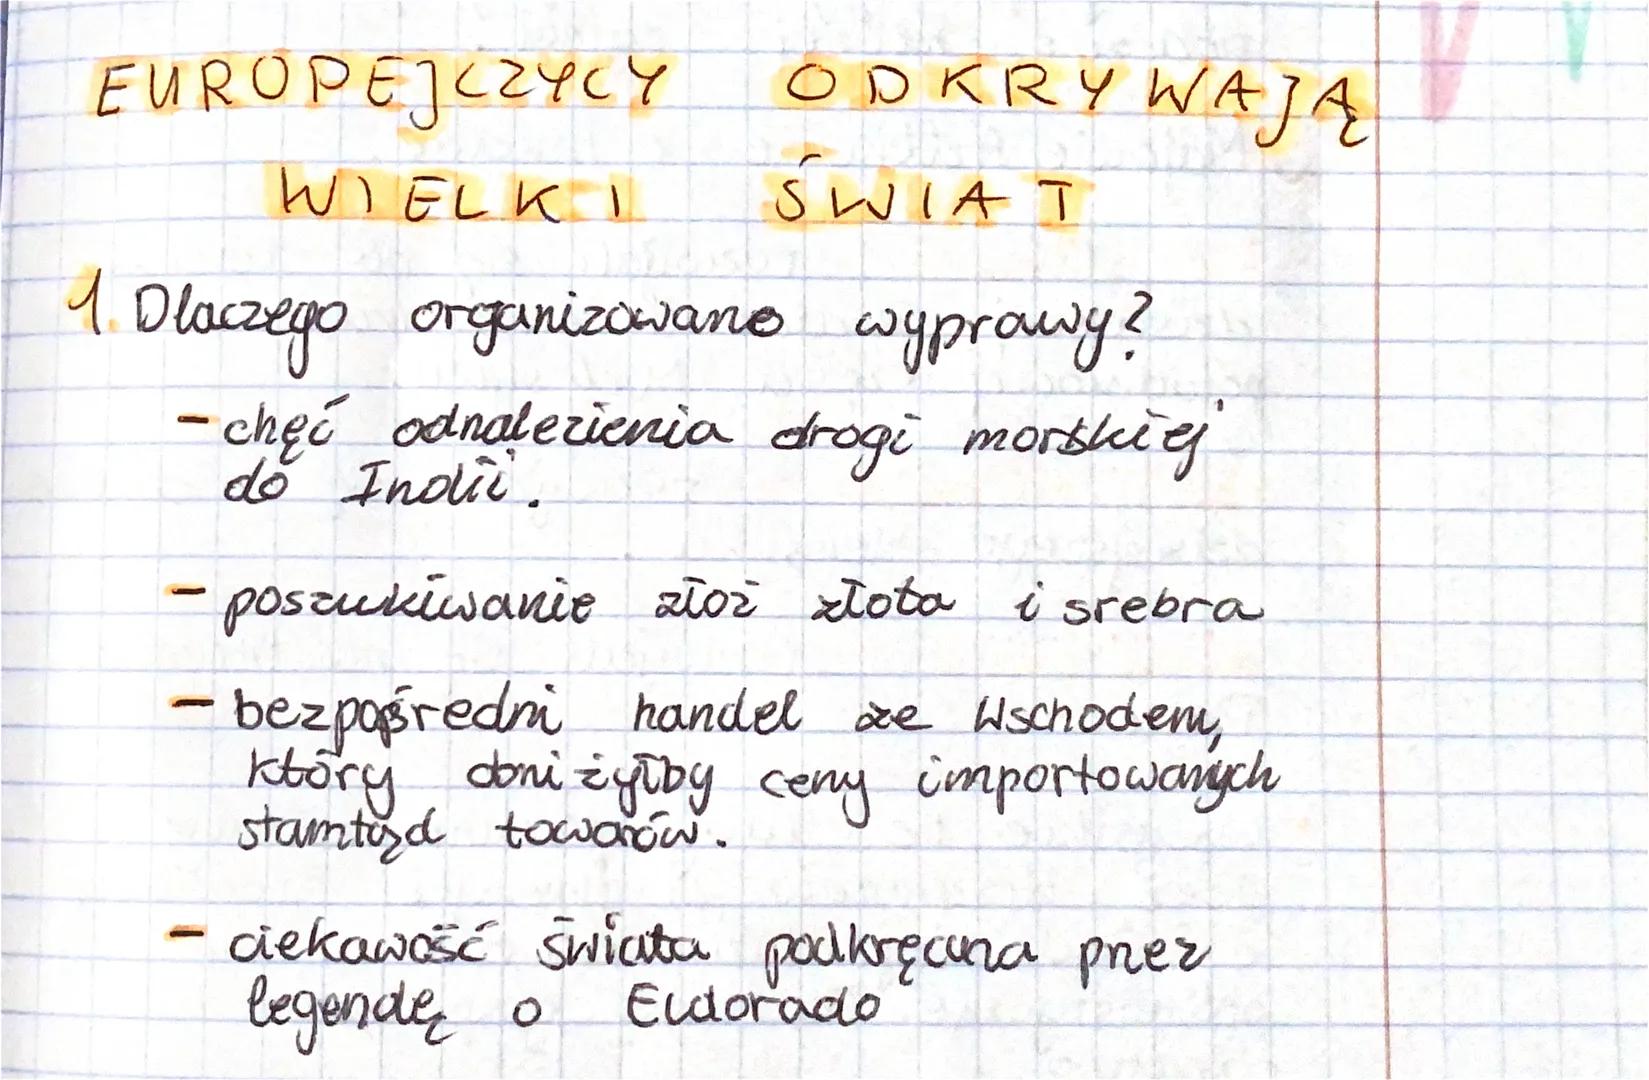 EUROPEJCZYCY ODKRYWAJĄ
WIELKI ŚWIAT
1. Dlaczego organizowano wyprawy?
- chęć odnalezienia drogi morskiej
do Indii.
- poszukiwanie złoż złota i srebra
- bezpośredni handel ze Wschodem,
który obniżyłby ceny importowanych
stamtąd towarów.
- ciekawość świata podkręcana przez
legendę o Eldorado